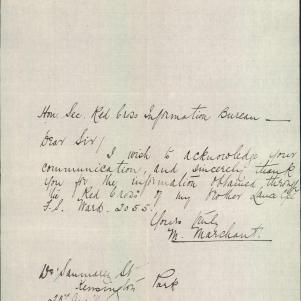 Hon. Sec. Red Cross Information Bureau —
Dear Sir/
I wish to acknowledge your
communication, and sincerely thank
you for the information obtained through
the Red Cross of my brother Lance Cpl
F.S. Ward. 2055.
Yours truly
M. Marchant.
St
Kensington Park